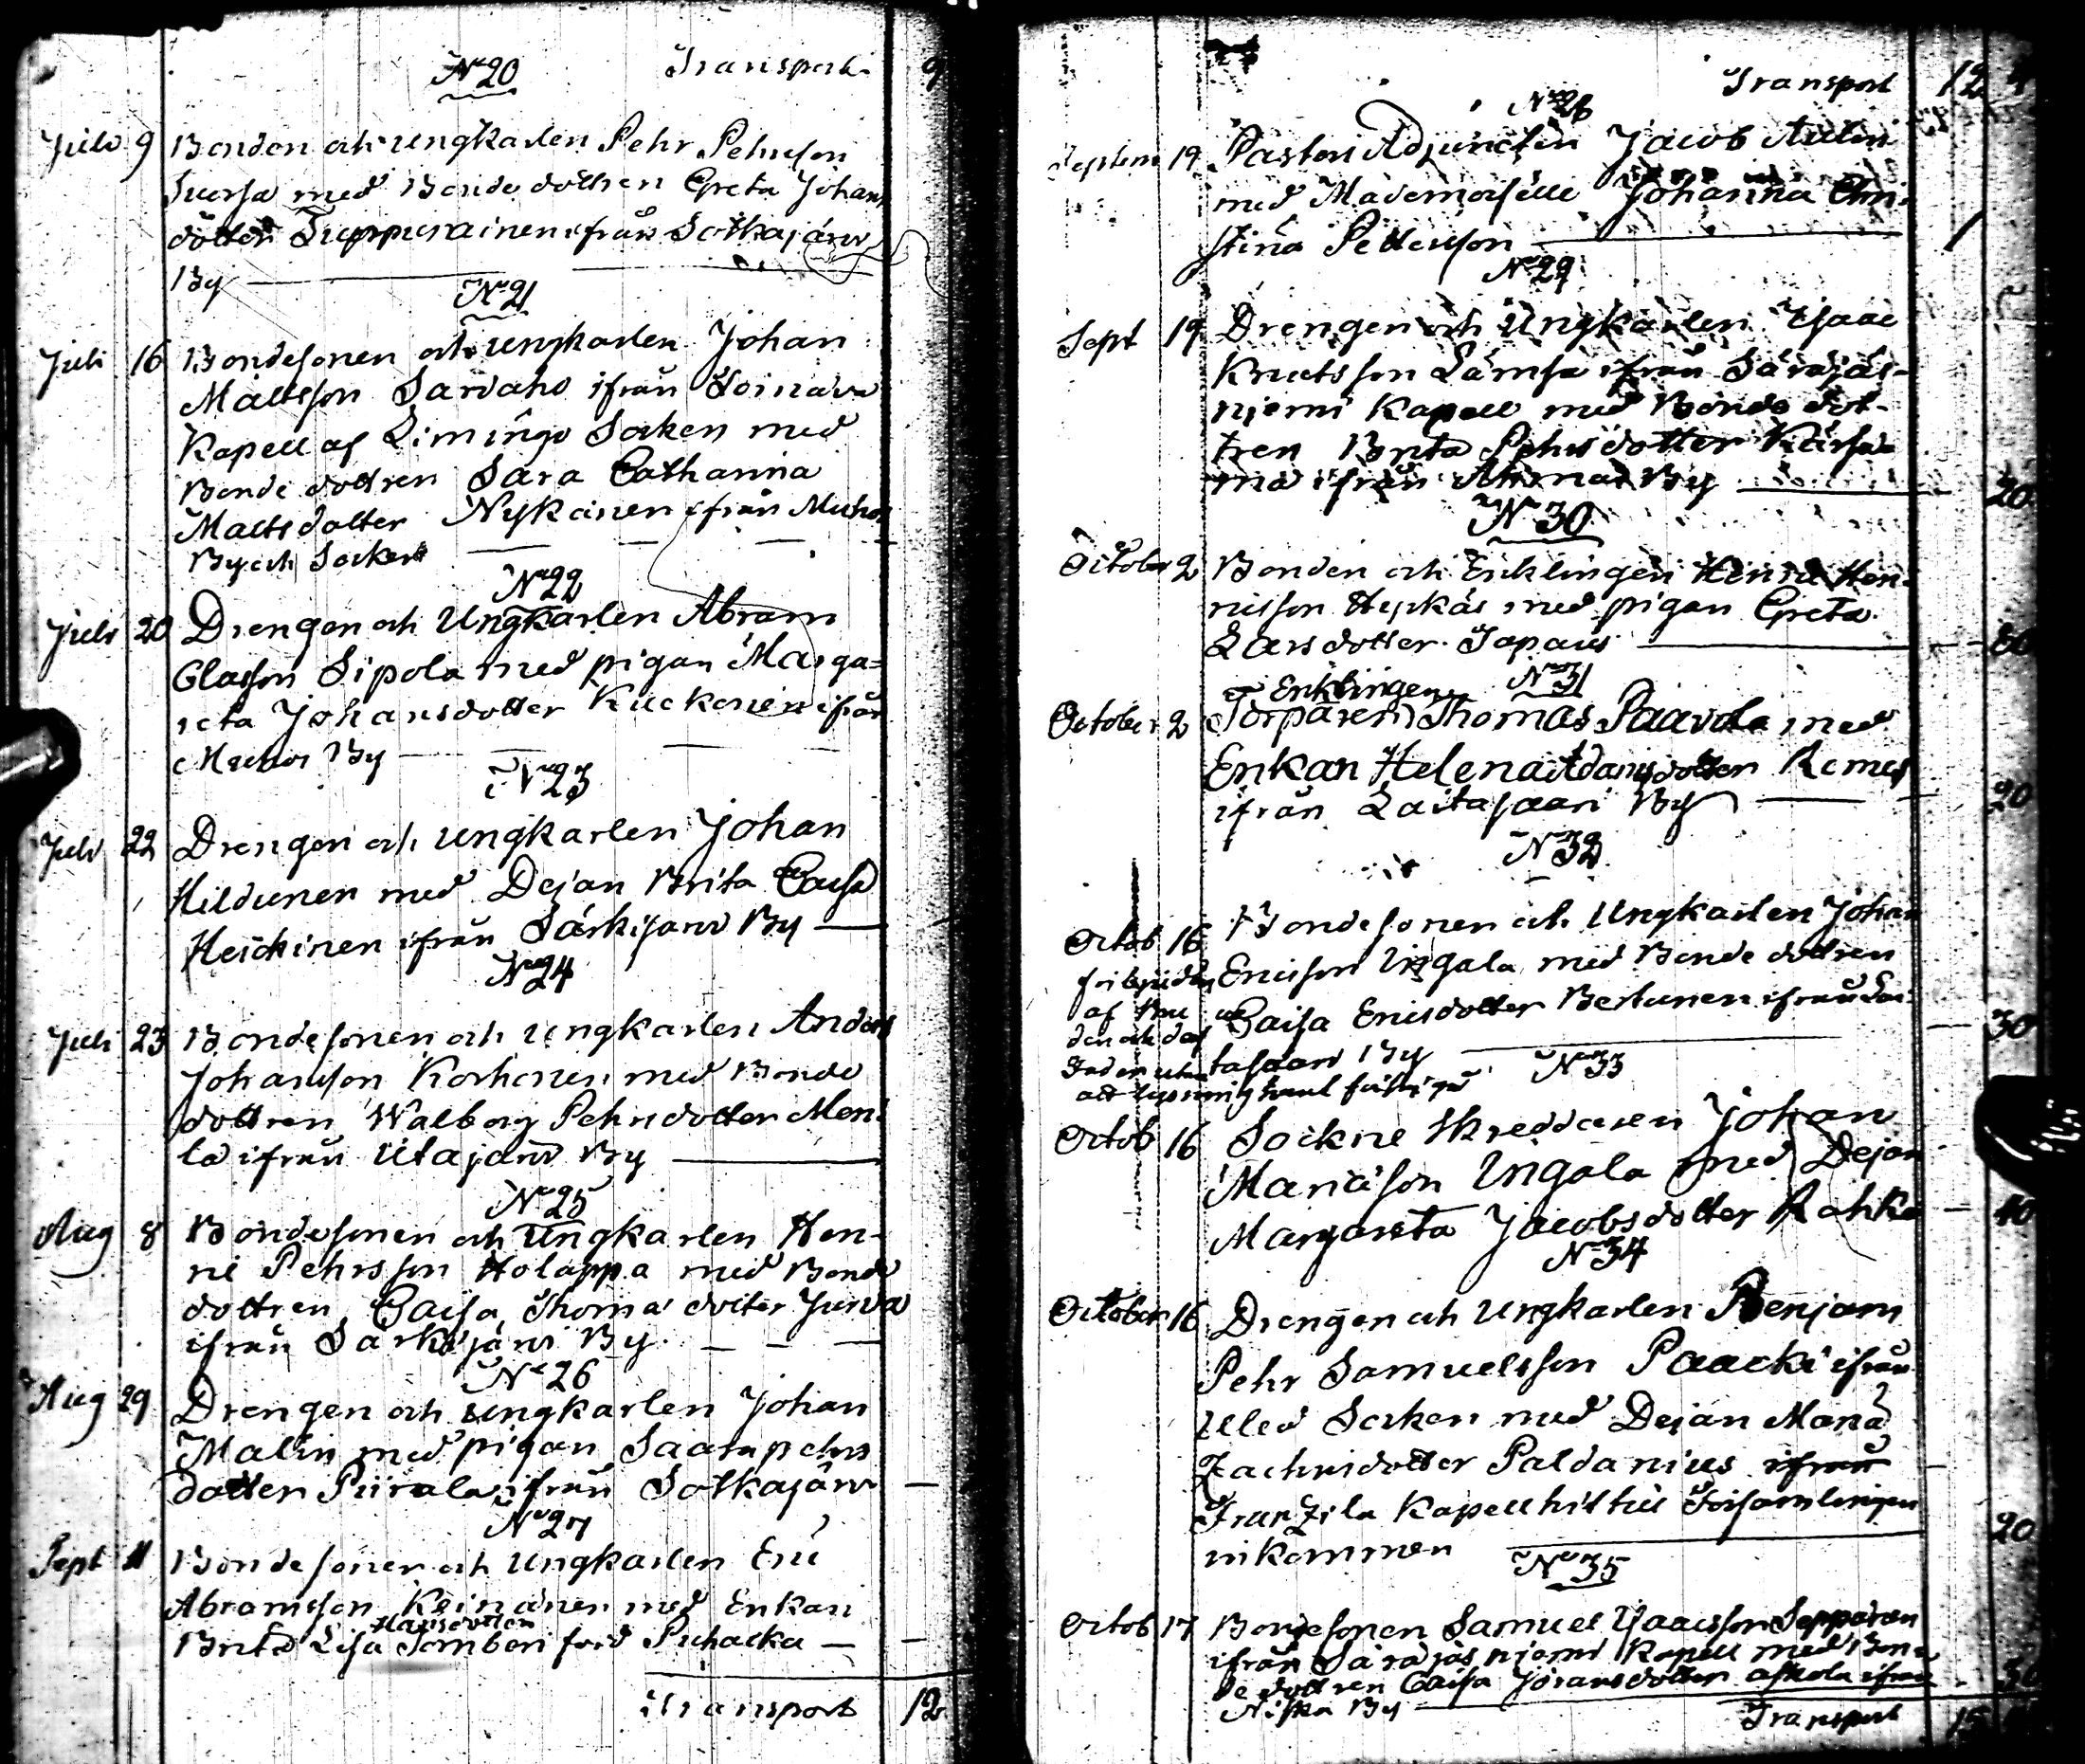 No 20 Transport 9
Julii 9 Bonden och ungkarlen Pehr Pehrsson
med Bonde dottren Greta Johans
dotter Tuppurainen ifrån Sotkajärvi
By
No 21
Julii 16 Bondesonen och ungkarlen Johan
Mattsson Sarvaho ifrån
Kapell af Limingo Socken med
Bonde dottren Sara Catharina
Mattsdotter Nykänen ifrån Muhos
By och Socken
No 22
Julii 20 Drengen och Ungkarlen Abram
Olasson Sipola med pigan Marga=
reta Johansdotter Kuckonen ifrån
Muhos By
No 23
Julii 22 Drengen och ungkarlen Johan
Hildunen med Dejan Brita Caisa
Heickinen ifrån Särkijarvi By
No 24
Julii 23 Bondesonen och ungkarlen Anders
Johansson Korhonen med Bonde
dottren Walborg Pehrsdotter Meri
la ifrån Utajarvi By
No 25
Aug 8 Bondesonen och Ungkarlen Hen-
ric Pehrsson Holappa med Bonde
dottren Caisa Thomae dotter Jurva
ifrån Särkijärvi By
No 26
Aug 29 Drengen och ungkarlen Johan
Malin med pigan Saara pehrs
dotter Piirala ifrån Sotkajärvi
No 27
Sept 11 Bondesonen och Ungkarlen Eric
Abramsson Keinänen med Enkan
Hansdotter
Brita Lisa född Puhacka
Transport 12
Transport 12
No 28
Septem 19 Pastors Adjuncten Jacob
med Mademoiselle Johanna Chri
stina Pettersson 1
No 29
Sept 19 Drengen och Ungkarlen Isaac
Knutsson Lämsä ifrån Säräjäs-
njemi Kapell med Bonde dot-
tren Brita Pehrsdotter Kärsä
mä ifrån Ahmas By 20
No 30
October 2 Bonden och Enklingen Henric Hen-
ricsson Hyrkäs med pigan Greta
Larsdotter
No 31
Enklingen
October 2 Torparen Thomas Paavola med
Enkan Helena Adamsdotter Remes
ifrån Laitasaari By 20
No 32
Octob 16 Bondesonen och Ungkarlen Johan
Ericsson Ingala med Bonde dottren
Caisa Ericsdotter Bertunen ifrån Lai- 30
tasaari By
No 33
Octob 16 Sockne Skreddaren Johan
Mariäson Ingala med Dejan
Margareta Jacobsdotter Rahko 40
No 34
October 16 Drengen och ungkarlen Benjam
Pehr Samuelsson Paacki ifrån
Uleå Socken med Dejan Maria
Zachrisdotter Paldanius ifrån
Franzila Kapell hit till Församlingen
inkommen 20
No 35
Octob 17 Bondesonen Samuel Isaacsson Seppänen
ifrån Säräjäsnjemi Kapell med Bon-
de dottren Caisa Jöransdotter ifrån
Niska By
Transport